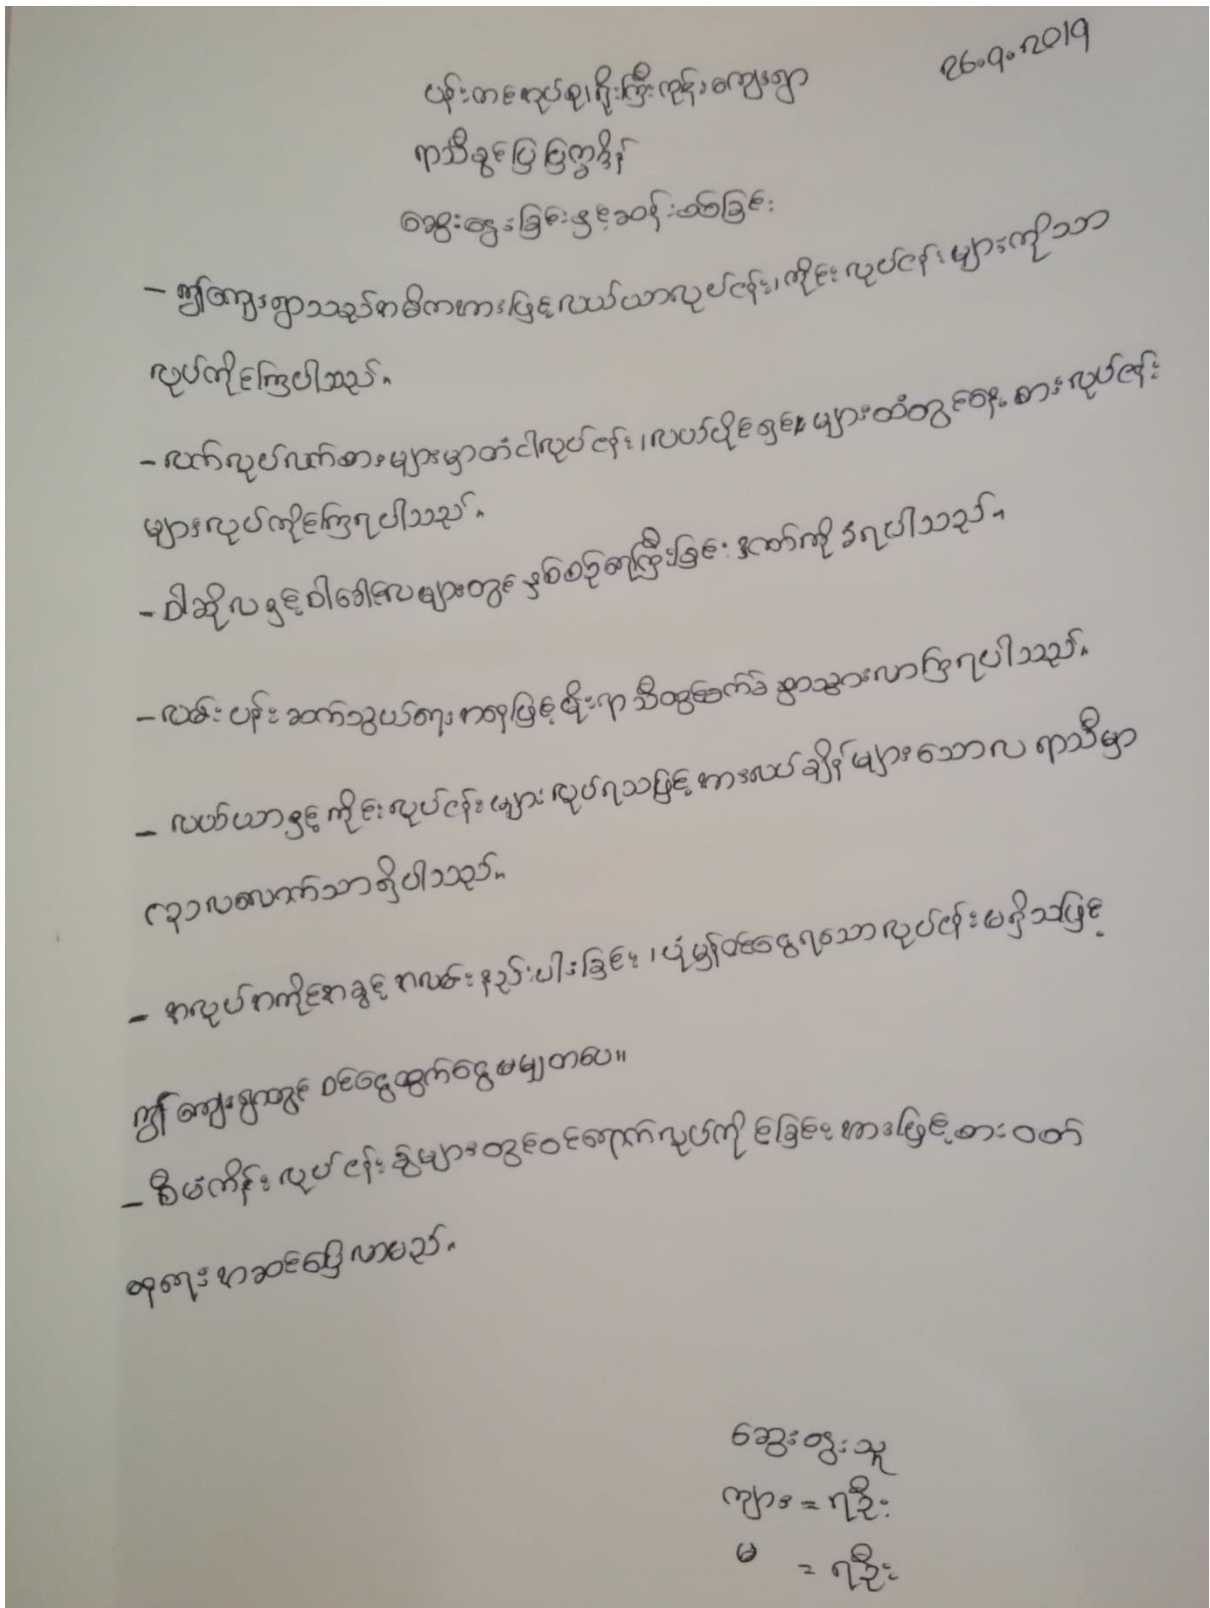 26.9.2019
ပန်းတင်အုပ်စု၊ရိုးကြီးကုန်းကျေးရွာ
ရာသီခွင်ပြပြက္ခဒိန်
ဆွေးနွေးခြင်းနှင့်ဆန်းစစ်ခြင်း
- ဤကျေးရွာသည်အဓိကအားဖြင့်လယ်ယာလုပ်ငန်း၊ကိုင်းလုပ်ငန်းများကိုသာ
လုပ်ကိုင်ကြပါသည်။
- လက်လုပ်လက်စားများမှာတံငါလုပ်ငန်း၊လယ်ပိုင်ရှင်များထံတွင်နေ့စားလုပ်ငန်း
များလုပ်ကိုင်ကြရပါသည်။
- ဝါဆိုလနှင့်ဝါခေါင်လများတွင်နှစ်စဉ်ရေကြီးခြင်းဒဏ်ကိုခံရပါသည်။
- လမ်းပန်းဆက်သွယ်ရေးအနေဖြင့်မိုးရာသီတွင်ခက်ခဲစွာသွားလာကြရပါသည်။
- လယ်ယာနှင့်ကိုင်းလုပ်ငန်းများလုပ်ရသဖြင့်အားလပ်ချိန်များသောလရာသီမှာ
၎င်း၃လလောက်သာရှိပါသည်။
- အလုပ်အကိုင်အခွင့်အလမ်းနည်းပါးခြင်း၊ပုံမှန်ဝင်ငွေရသောလုပ်ငန်းမရှိသဖြင့်
ဤကျေးရွာတွင်ဝင်ငွေထွက်ငွေမမျှတပေ။
- စီမံကိန်းလုပ်ငန်းခွဲများတွင်ဝင်ရောက်လုပ်ကိုင်ခြင်းအားဖြင့်စားဝတ်
နေရေးအဆင်ပြေလာမည်။
ဆွေးနွေးသူ
ကျား = ၇ဦး
မ = ၇ဦး